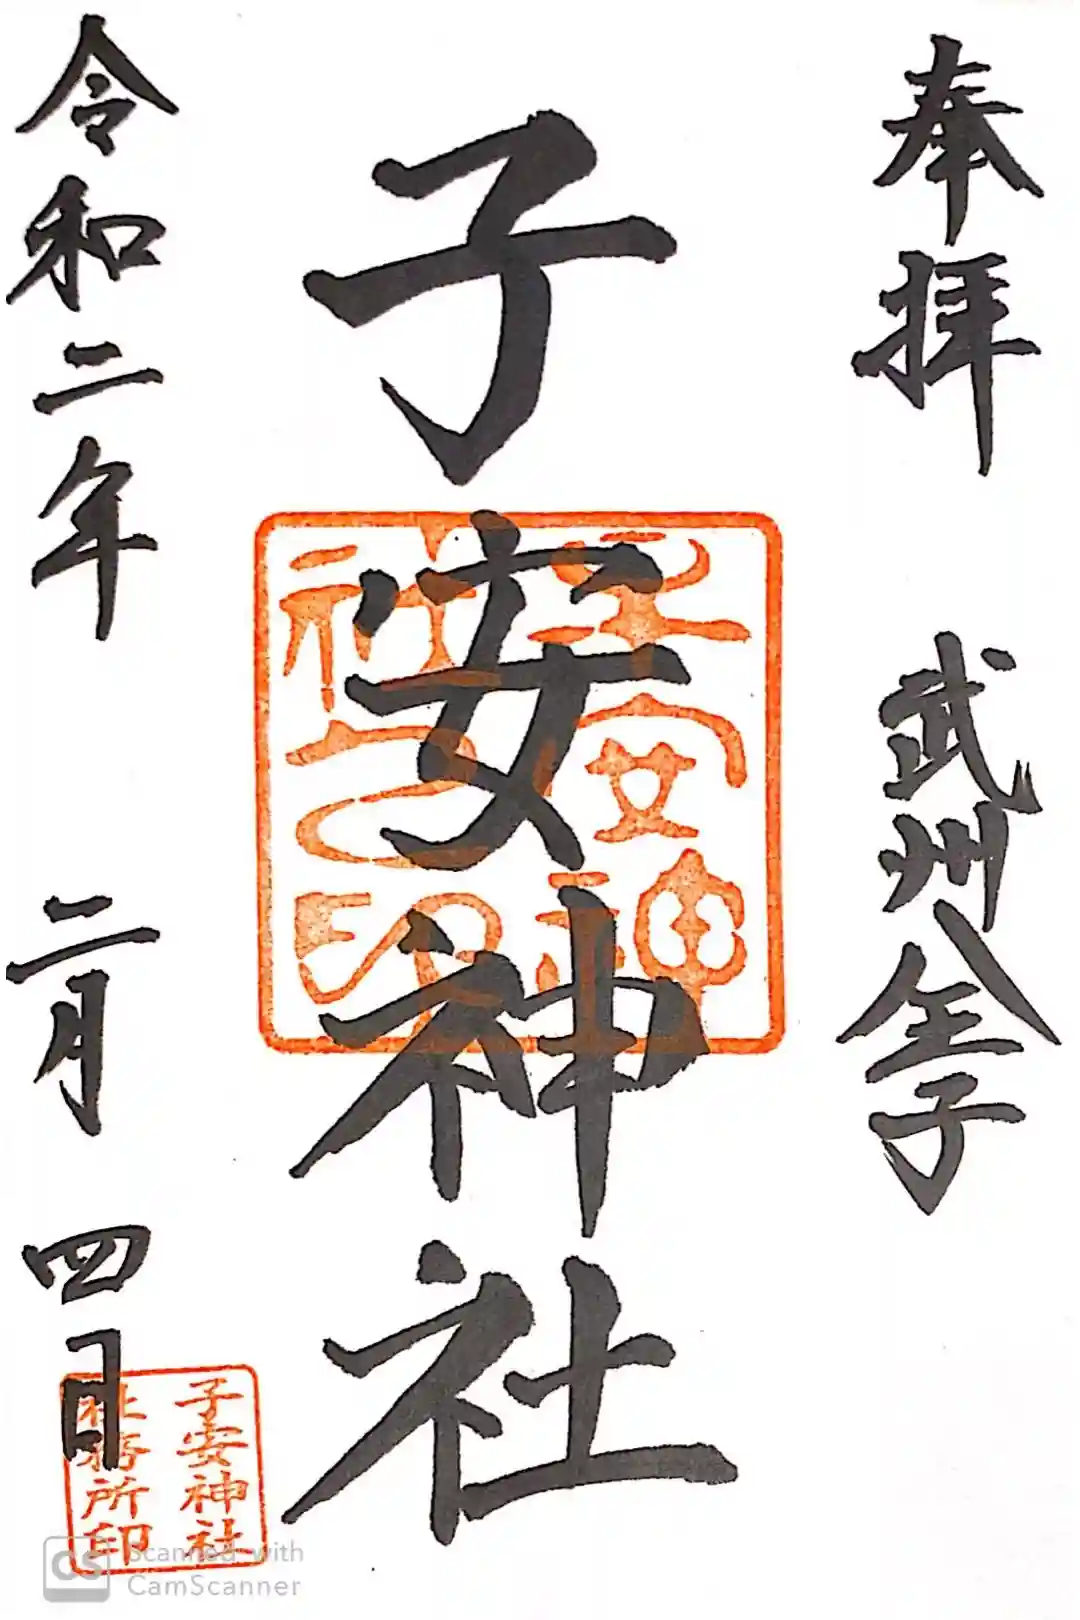 奉拝
武州八王子
子安神社
子安神社之印
令和二年
二月
四日
子安神社
社務所印
CS Scanned with
CamScanner